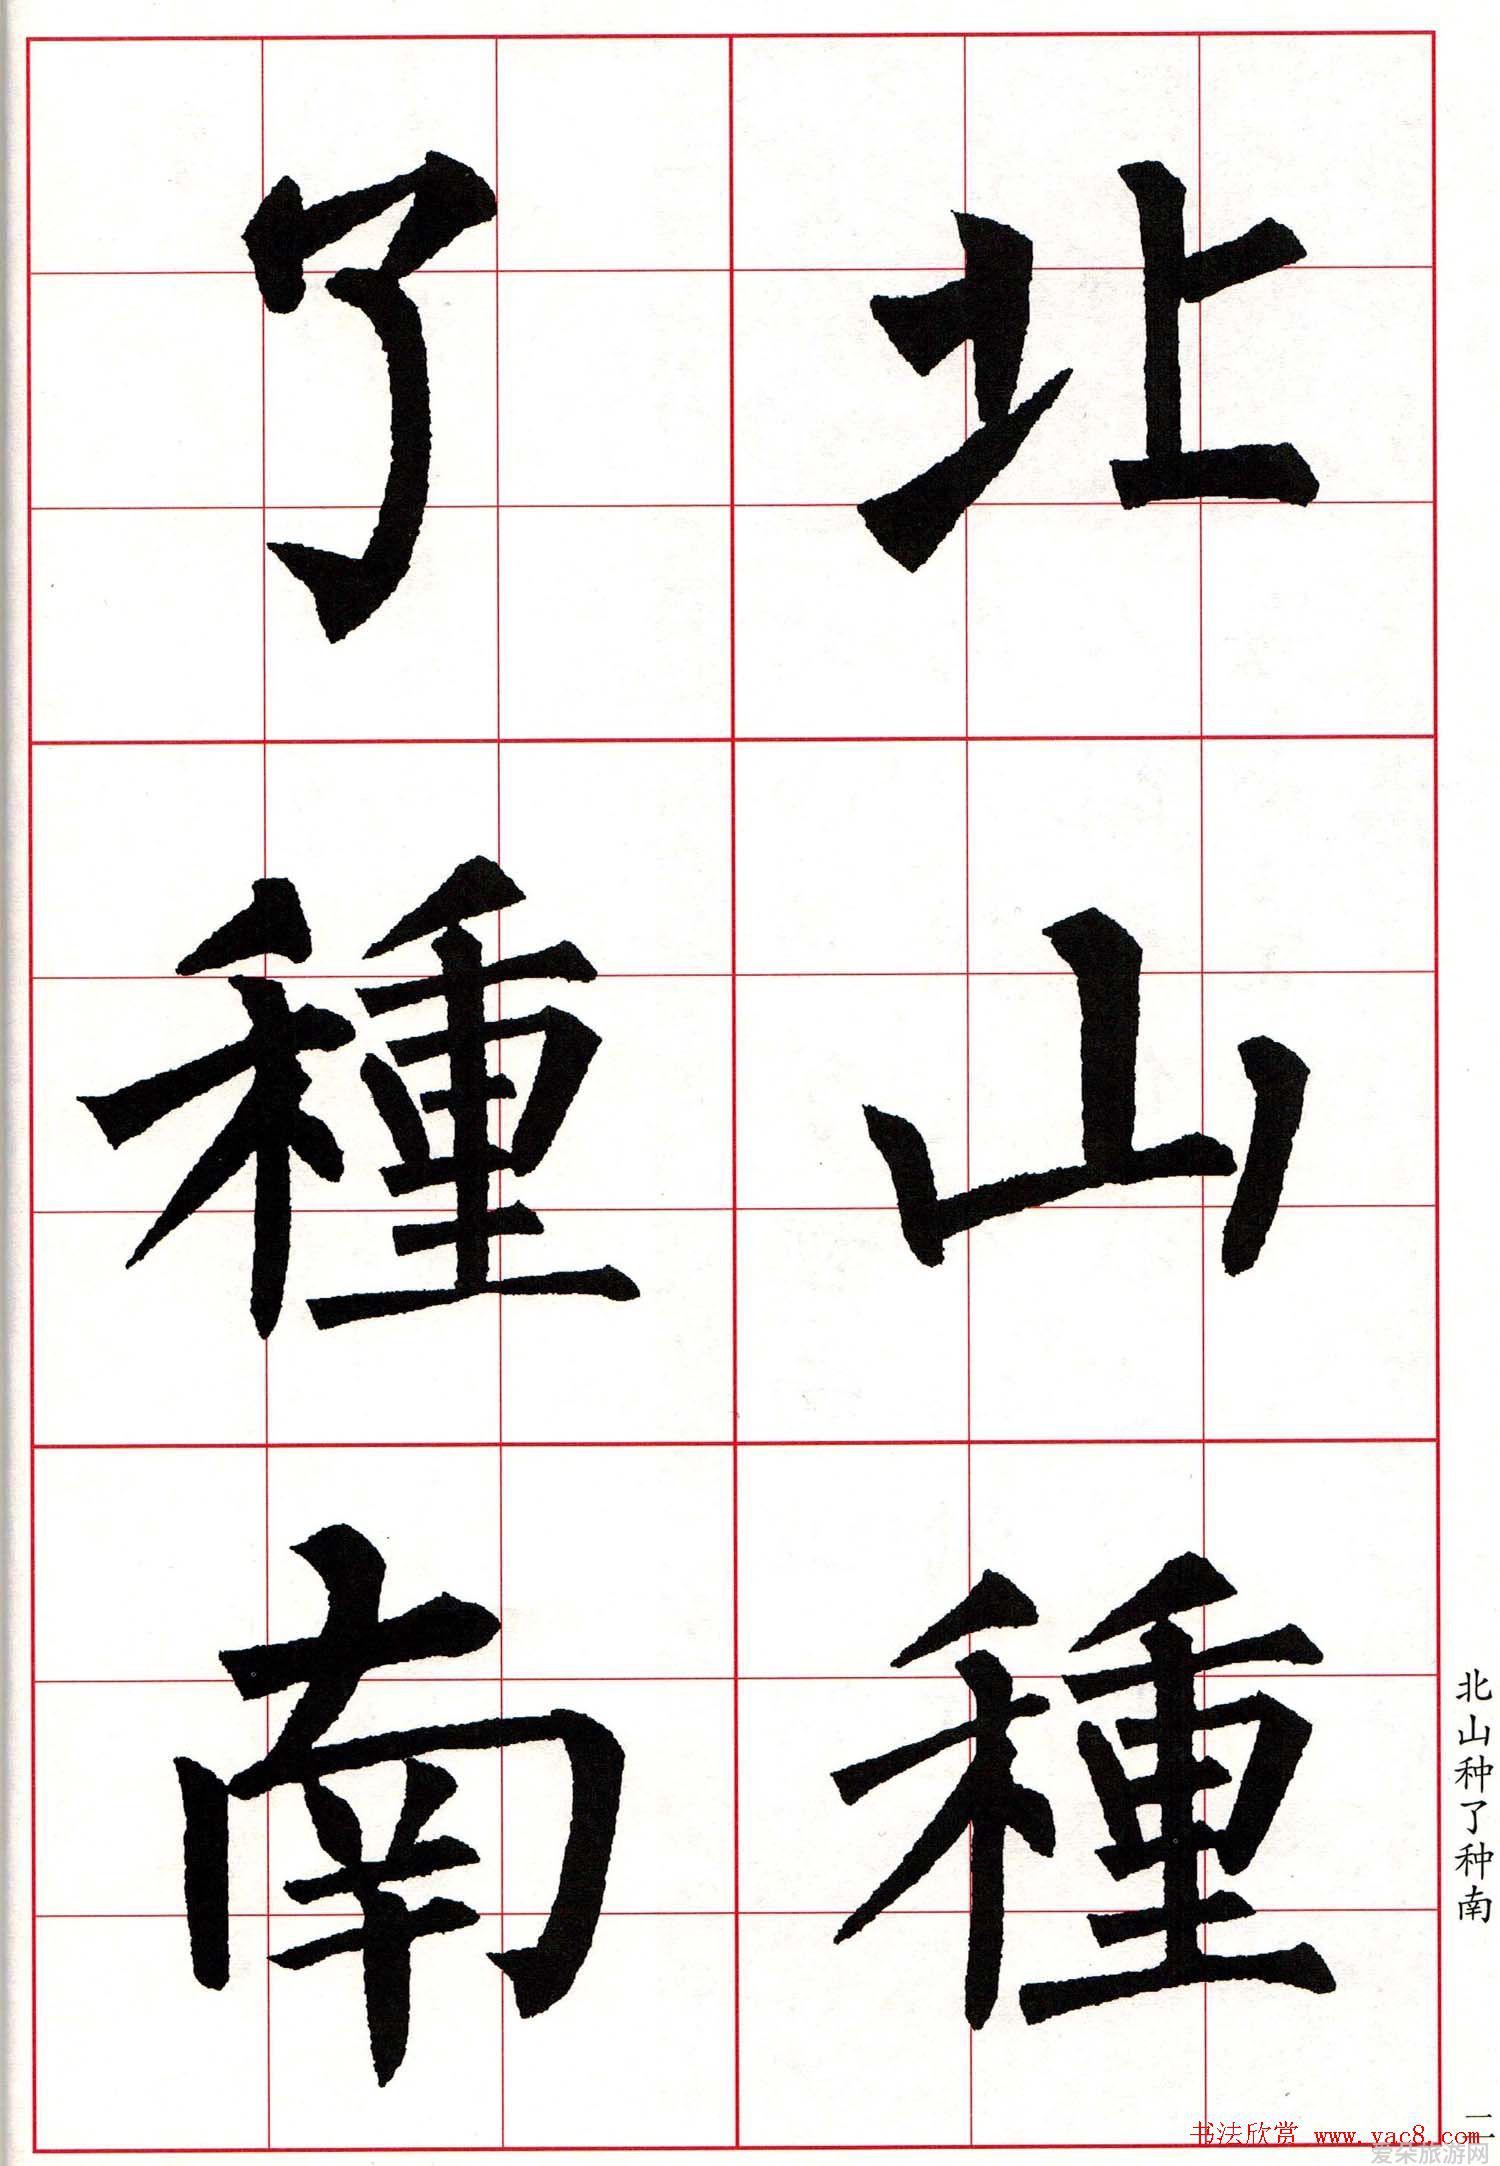 北山種
了種南
北山种了种南
二
书法欣赏 www.yac8.com
爱朵旅游网